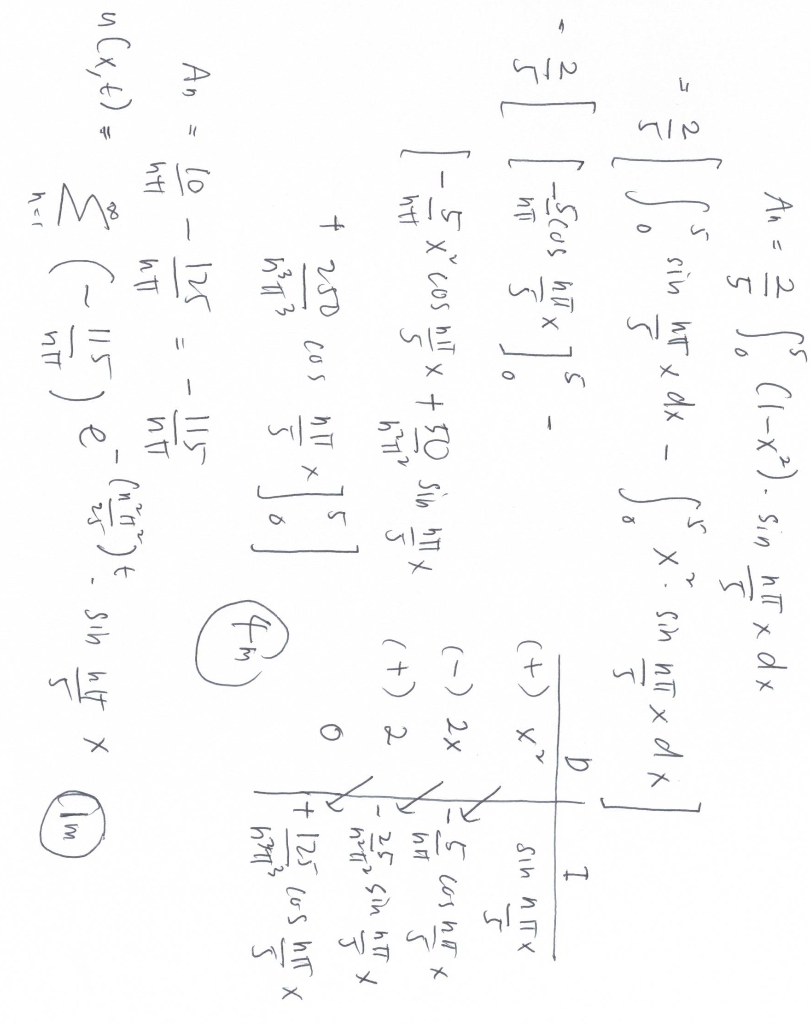 An = 2/5 ∫₀⁵ (1-x²). sin nπ/5 x dx
= 2/5 [ ∫₀⁵ sin nπ/5 x dx - ∫₀⁵ x². sin nπ/5 x dx ]
= 2/5 [ [ -5/nπ cos nπ/5 x ]₀⁵ -
[ -5/nπ x² cos nπ/5 x + 50/n²π² sin nπ/5 x
+ 250/n³π³ cos nπ/5 x ]₀⁵ ]
D I
(+) x² sin nπ/5 x
(-) 2x -5/nπ cos nπ/5 x
(+) 2 -25/n²π² sin nπ/5 x
0 +125/n³π³ cos nπ/5 x
4m
An = 10/nπ - 125/nπ = - 115/nπ
u(x,t) = ∑ₙ₌₁^∞ (-115/nπ) e^-(n²π²/25)t . sin nπ/5 x
1m